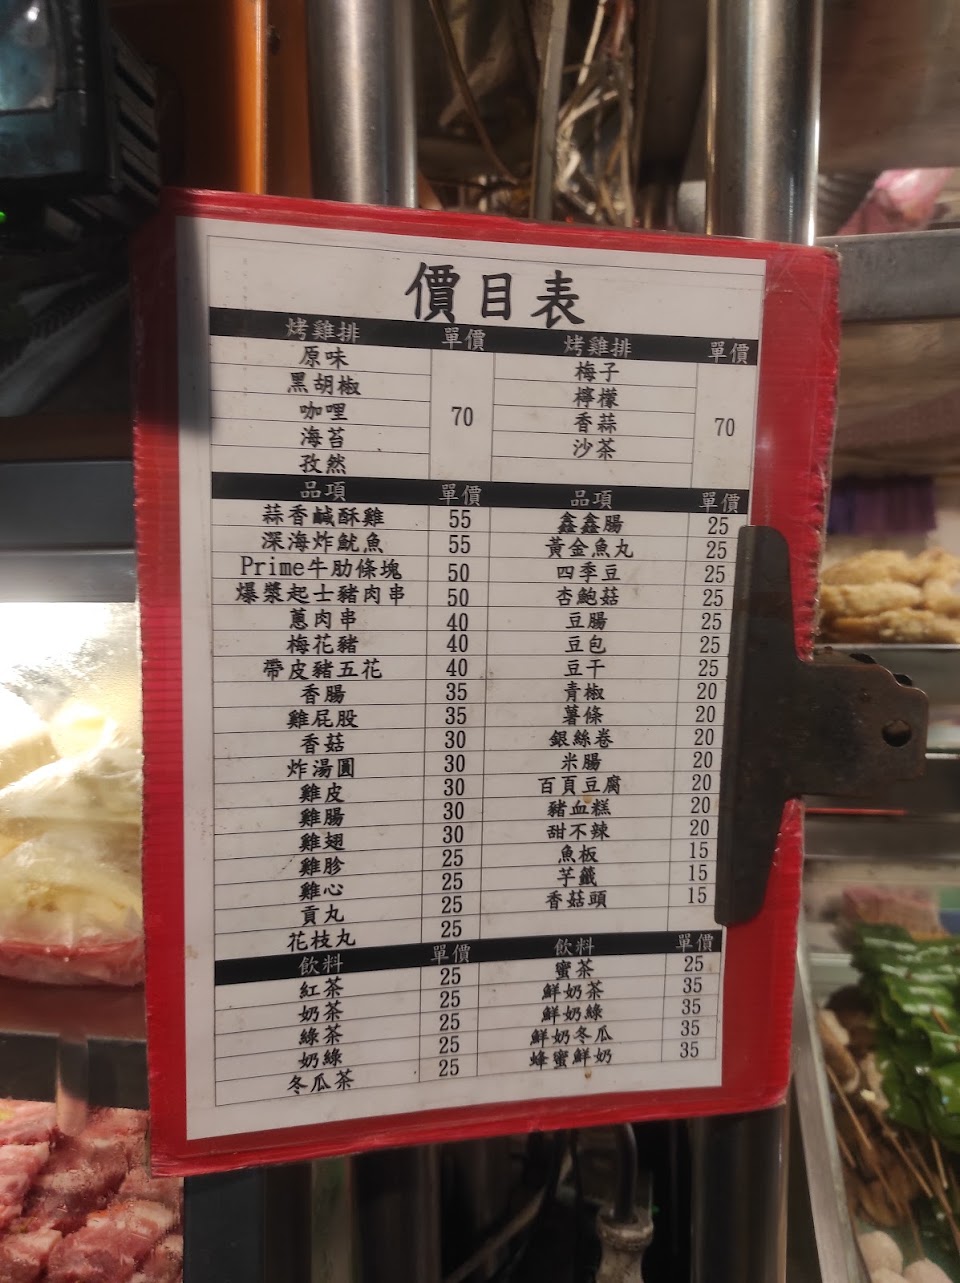 價目表
烤雞排 單價 烤雞排 單價
原味 70 梅子 70
黑胡椒 檸檬
咖哩 香蒜
海苔 沙茶
孜然
品項 單價 品項 單價
蒜香鹹酥雞 55 鑫鑫腸 25
深海炸魷魚 55 黃金魚丸 25
Prime牛肋條塊 50 四季豆 25
爆漿起士豬肉串 50 杏鮑菇 25
蔥肉串 40 豆腸 25
梅花豬 40 豆包 25
帶皮豬五花 40 豆干 25
香腸 35 青椒 20
雞屁股 35 薯條 20
香菇 30 銀絲卷 20
炸湯圓 30 米腸 20
雞皮 30 百頁豆腐 20
雞腸 30 豬血糕 20
雞翅 30 甜不辣 20
雞胗 25 魚板 15
雞心 25 芋籤 15
貢丸 25 香菇頭 15
花枝丸 25
飲料 單價 飲料 單價
紅茶 25 蜜茶 25
奶茶 25 鮮奶茶 35
綠茶 25 鮮奶綠 35
奶綠 25 鮮奶冬瓜 35
冬瓜茶 25 蜂蜜鮮奶 35